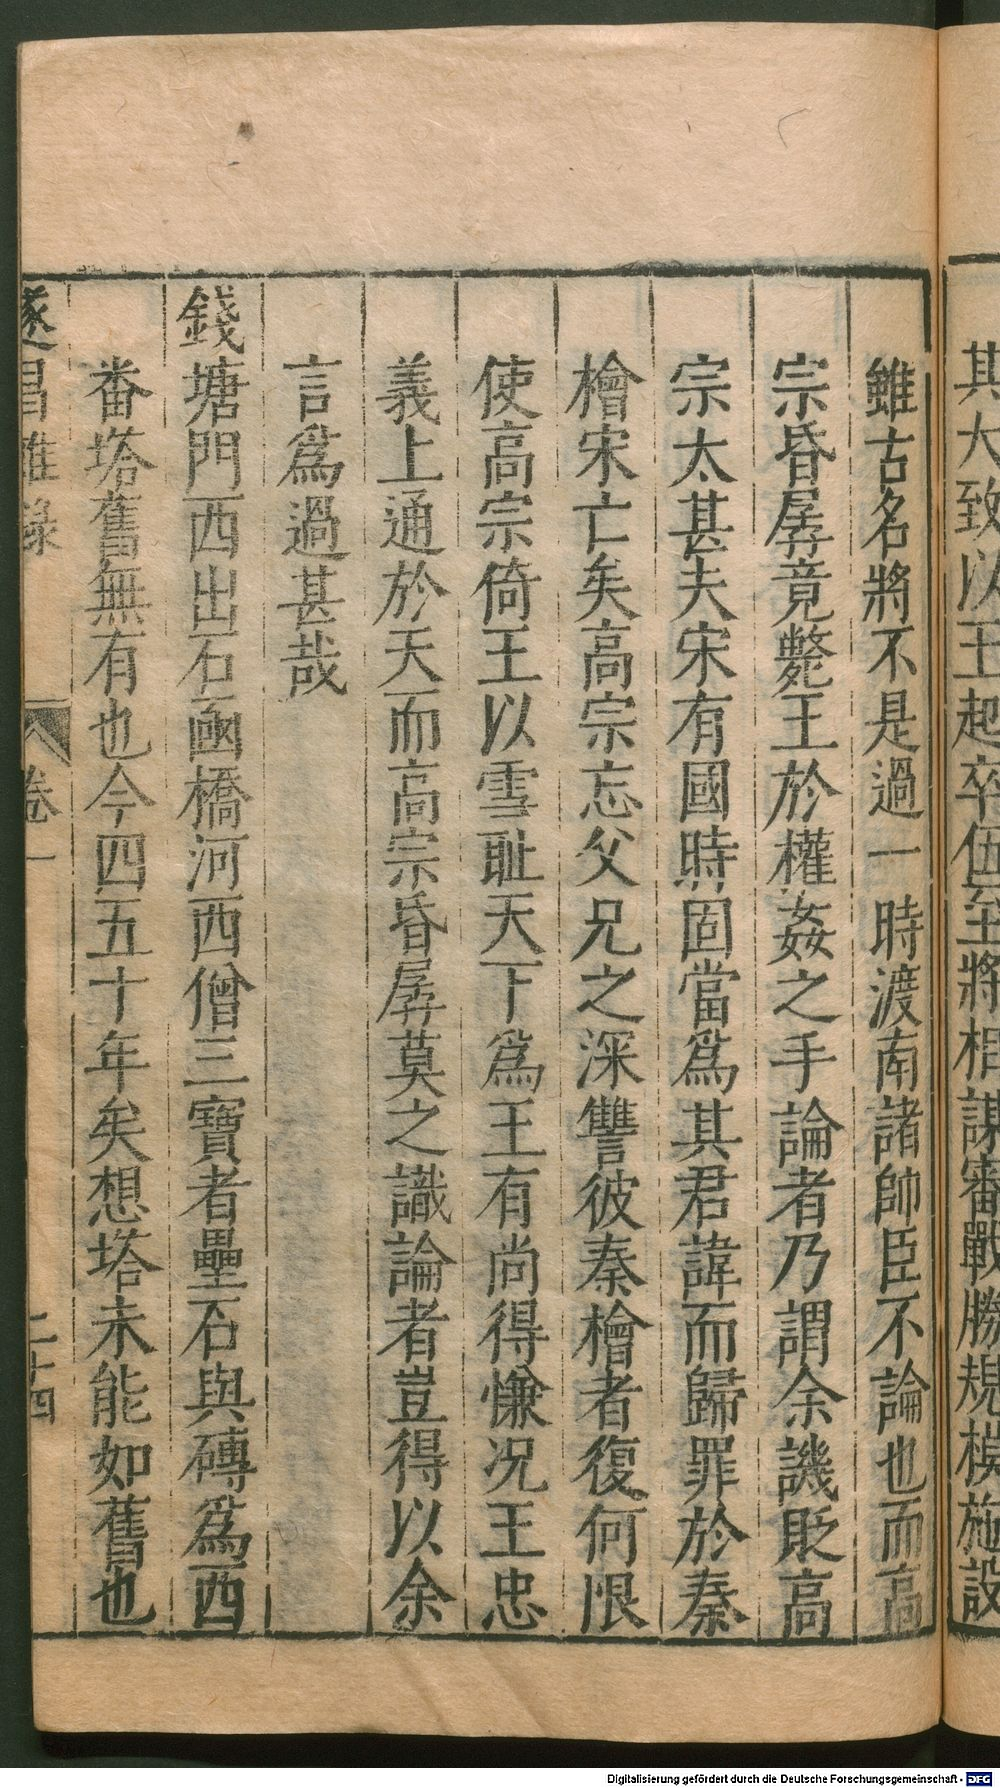 其大致以王起卒伍至將相謀審戰勝規模施設
雖古名將不是過一時渡南諸帥臣不論也而高
宗昏孱竟斃王於權姦之手論者乃謂余譏貶高
宗太甚夫宋有國時固當爲其君諱而歸罪於秦
檜宋亡矣高宗忘父兄之深讐彼秦檜者復何恨
使高宗倚王以雪耻天下爲王有尚得慊况王忠
義上通於天而高宗昏孱莫之識論者豈得以余
言爲過甚哉
錢塘門西出石凾橋河西僧三寶者壘石與磚爲西
番塔舊無有也今四五十年矣想塔未能如舊也
遂昌雜錄 卷一 二十四
Digitalisierung gefördert durch die Deutsche Forschungsgemeinschaft - DFG